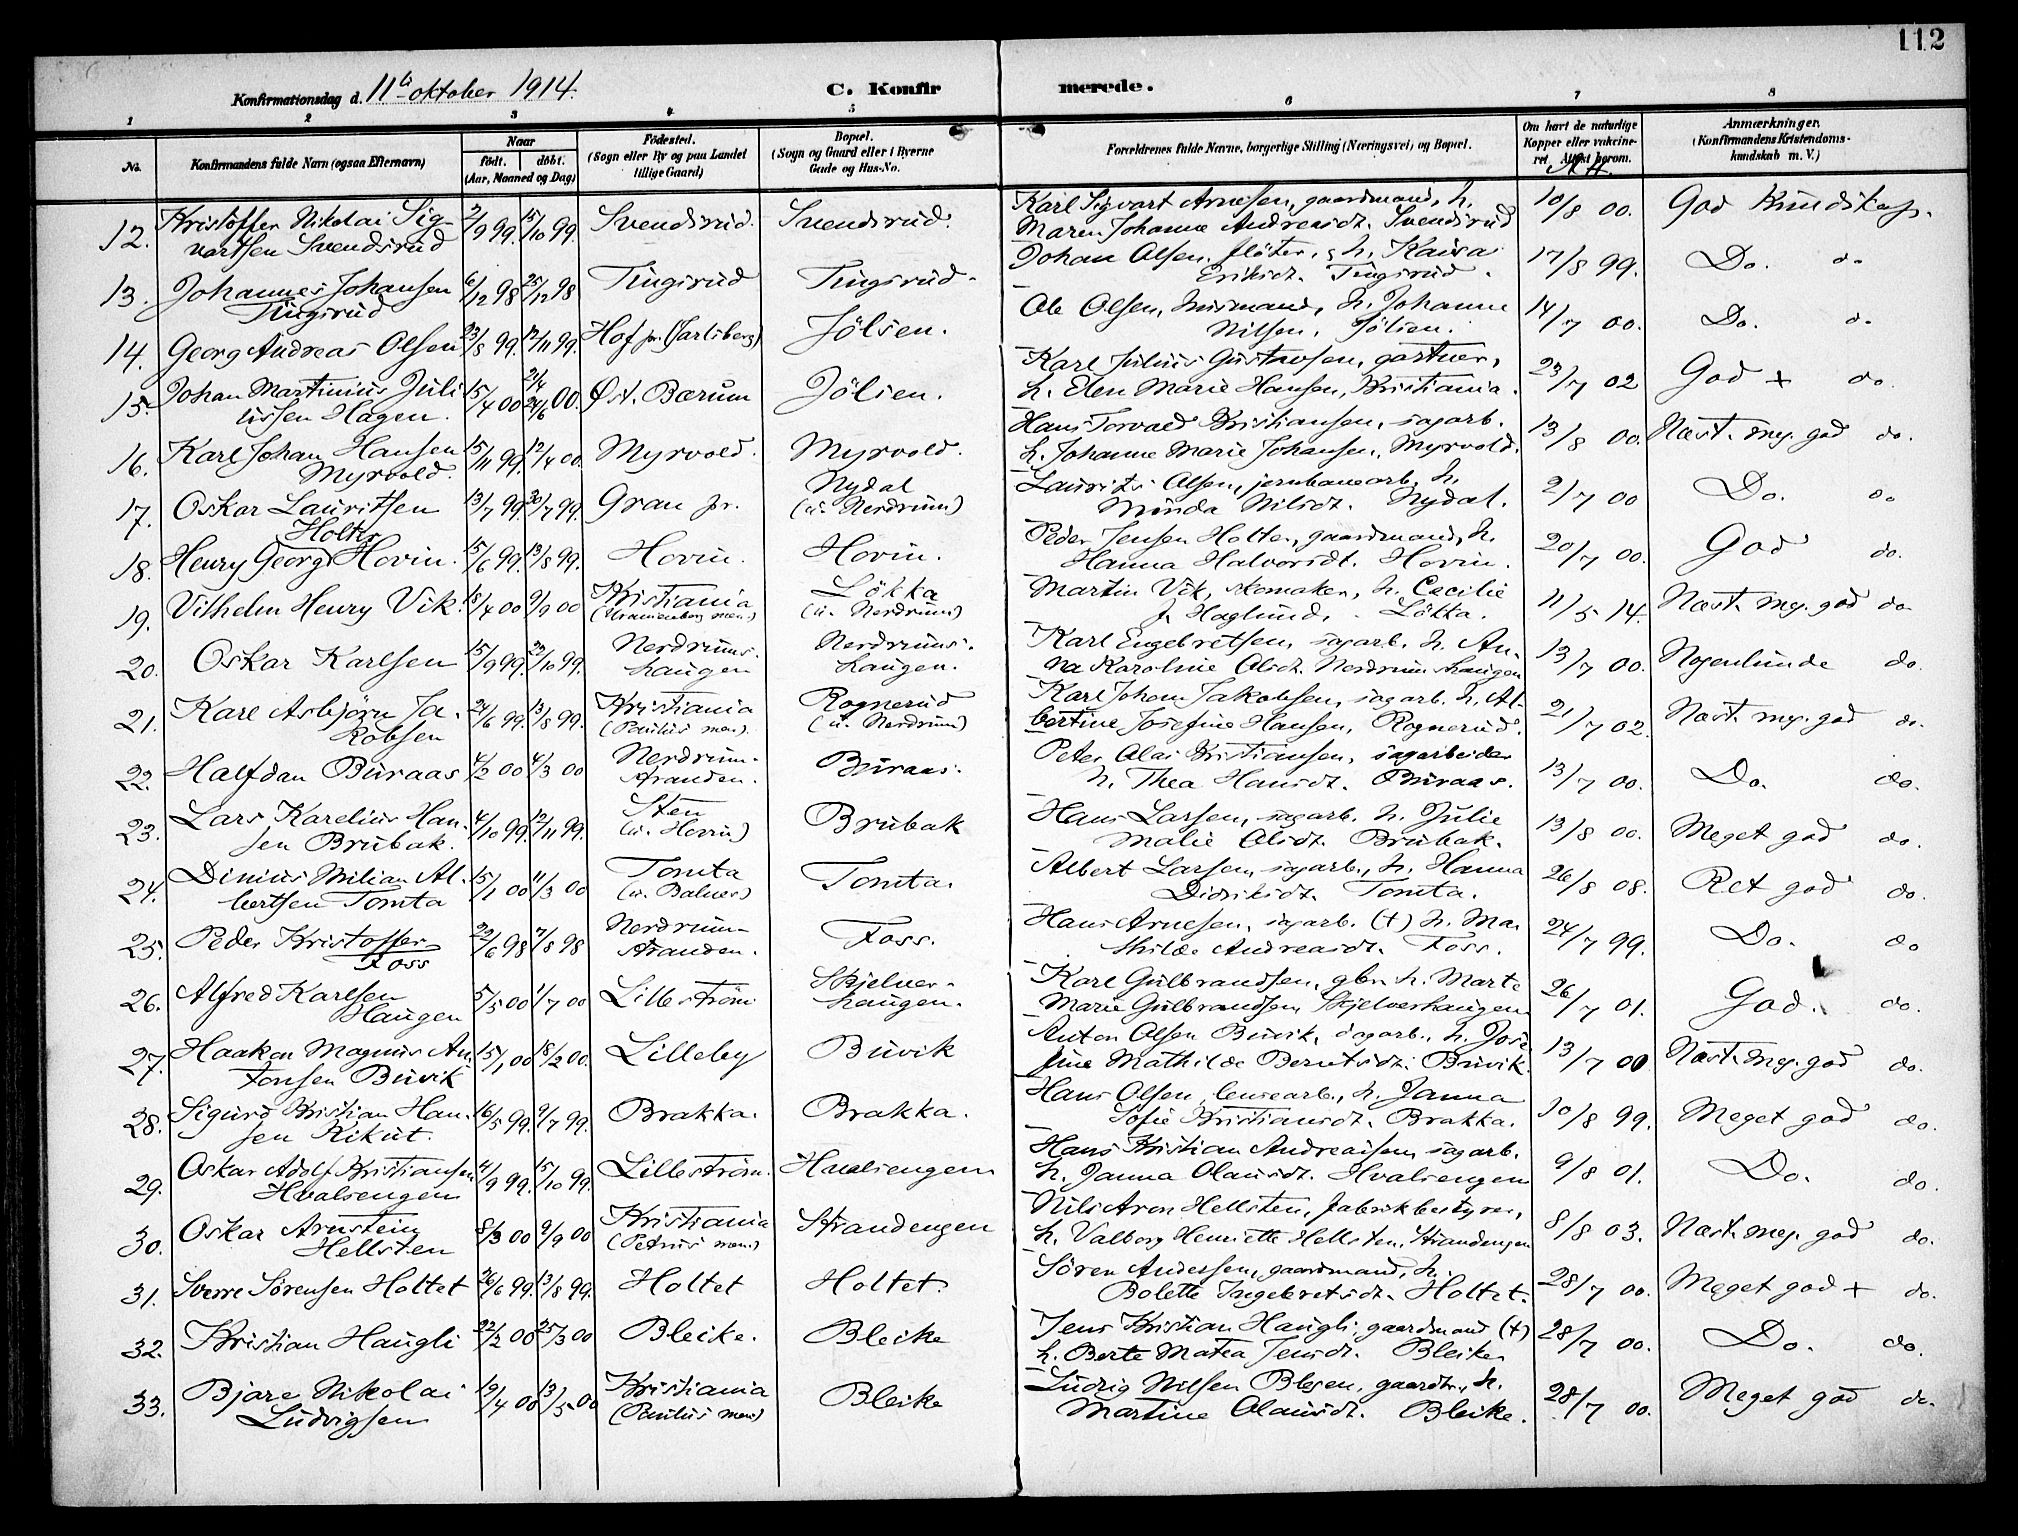 112
Konfirmationsdag d. 11te oktober 1914.
C. Konfirmerede.
1 2 3 4 5 6 7 8
No. Konfirmandens fulde Navn (ogsaa Efternavn) Naar født. døbt. (Aar, Maaned og Dag) Födested. (Sogn eller By og paa Landet tillige Gaard) Bopæl. (Sogn og Gaard eller i Byerne Gade og Hus-No. Forældrenes fulde Navne, borgerlige Stilling (Næringsvei) og Bopæl. Om havt de naturlige Kopper eller vakcineret. Attest herom. Anmærkninger. (Konfirmandens Kristendomskundskab m. V.)
12. Kristoffer Nikolai Sig- 2/9 99. 15/10 99. Svendsrud. Svendsrud. Karl Sigvart Arnesen, gaardmand, h. 10/8 00. God Kundskap.
vartsen Svendsrud Maren Johanne Andreasdt. Svendsrud
13. Johannes Johansen 6/12 98 25/12 98 Tingsrud Tingsrud. Johan Olsen, fløter, & h. Kaisa 17/8 99. Do. do
Tingsrud Eriksdt. Tingsrud.
14. Georg Andreas Olsen 23/8 99. 12/11 99. Hof pr. (Jarlsberg) Jölsen. Ole Olsen, husmand, h. Johanne 14/7 00. Do. do.
Nilsen, Jölsen.
15. Johan Martinius Juli- 15/4 00 21/4 24/6 00. Øst. Bærum Jölsen. Karl Julius Gustavsen, gartner, 23/7 02 God + do.
ussen Hagen. h. Elen Marie Hansen, Kristiania.
16. Karl Johan Hansen 15/11 99. 12/4 00. Myrvold. Myrvold. Hans Torvald Kristiansen, sagarb. 13/8 00. Næst. meg. god do.
Myrvold. h. Johanne Marie Johansen, Myrvold.
17. Oskar Lauritsen 13/7 99. 30/7 99. Gran pr. Nydal Laurits Olsen, jernbanearb. h. 2/7 00 Do. do
(u. Nerdrum) Minda Nilsdt. Nydal.
18. Henry Georg Holter Hovin. 15/6 99. 13/8 99. Hovin. Hovin. Peder Jensen Holter, gaardmand, h. 20/7 00. God do.
Hanna Halvorsdt. Hovin.
19. Vilhelm Henry Vik. 18/4 00 9/9 00 Kristiania Lökka Martin Vik, skomaker, h. Cecilie 11/5 14. Næst. meg. god do
(Uranienborg men.) (u. Nerdrum) J. Haglund, Lökka.
20. Oskar Karlsen 15/9 99. 29/10 99. Nerdrums- Nerdrums- Karl Engebretsen, sagarb. h. An- 13/7 00. Nogenlunde do.
haugen haugen. na Karoline Olsdt. Nerdrumshaugen
21. Karl Asbjörn Ja- 24/6 99. 13/8 99. Kristiania Rognerud Karl Johan Jakobsen, sagarb. h. Al- 21/7 02. Næst. meg. god do.
kobsen (Paulus men). (u. Nerdrum) bertine Josefine Hansen, Rognerud.
22. Halfdan Buraas 4/2 00 4/3 00 Nerdrum- Buraas. Peter Olai Kristiansen, sagarbeider 13/7 00. Do. do.
stranden. h. Thea Hansdt. Buraas.
23. Lars Karelius Han- 4/10 99. 12/11 99. Sten Brubak Hans Larsen, sagarb. h. Julie 13/8 00. Meget god do.
sen Brubak. (u. Hovin) Malie Olsdt. Brubak.
24. Dinius Milian Al- 15/1 00 11/3 00 Tomta Tomta. Albert Larsen, sagarb., h. Hanna 26/8 08. Ret god do.
bertsen Tomta (u. Balner) Didriksdt. Tomta.
25. Peder Kristoffer 22/6 98 7/8 98 Nerdrum- Foss. Hans Arnesen, sagarb. (†) h. Ma- 24/7 99. Do. do
Foss stranden. thilde Andreasdt. Foss.
26. Alfred Karlsen 5/5 00 1/7 00 Lilleström Skjelver- Karl Gulbrandsen, gbr. h. Marte 26/7 01. God. do.
Haugen haugen. Marie Gulbrandsen, Skjelverhaugen
27. Haakon Magnus An- 15/1 00 18/2 00. Lilleby Buvik Anton Olsen Buvik, sagarb., h. Jose- 13/7 00 Næst. meg. god do.
tonsen Buvik fine Mathilde Berntsdt. Buvik.
28. Sigurd Kristian Han- 16/5 99. 9/7 99. Brakka. Brakka. Hans Olsen, lensearb., h. Janna 30/8 99. Meget god do.
sen Kikut. Sofie Kristiansdt. Brakka.
29. Oskar Adolf Kristiansen 4/9 99. 15/10 99. Lilleström. Hvalsengen Hans Kristian Andreassen, sagarb. 9/8 01. Do. do.
Hvalsengen h. Janna Olausdt. Hvalsengen
30. Oskar Arnstein 8/3 00 9/9 00 Kristiania Strandengen Nils Aron Hellsten, fabrikbestyrer, 8/8 03. Næst. meg. god do.
Hellsten (Petrus men.) h. Valborg Henriette Hellsten, Strandengen
31. Sverre Sørensen Holtet 26/6 99. 13/8 99. Holtet Holtet. Sören Andersen, gaardmand, h. 28/7 00. Meget god + do.
Bolette Ingebretsdt. Holtet.
32. Kristian Haugli 22/2 00 25/3 00 Bleike. Bleike Jens Kristian Haugli, gaardmand (†) 28/7 00. Do. do.
h. Berte Matea Jensdt. Bleike
33. Bjare Nikolai 19/4 00 13/5 00 Kristiania Bleike Ludvig Nilsen Blegen, gaardbr., h. 28/7 00. Meget god do.
Ludvigsen (Paulus men) Martine Olausdt. Bleike.